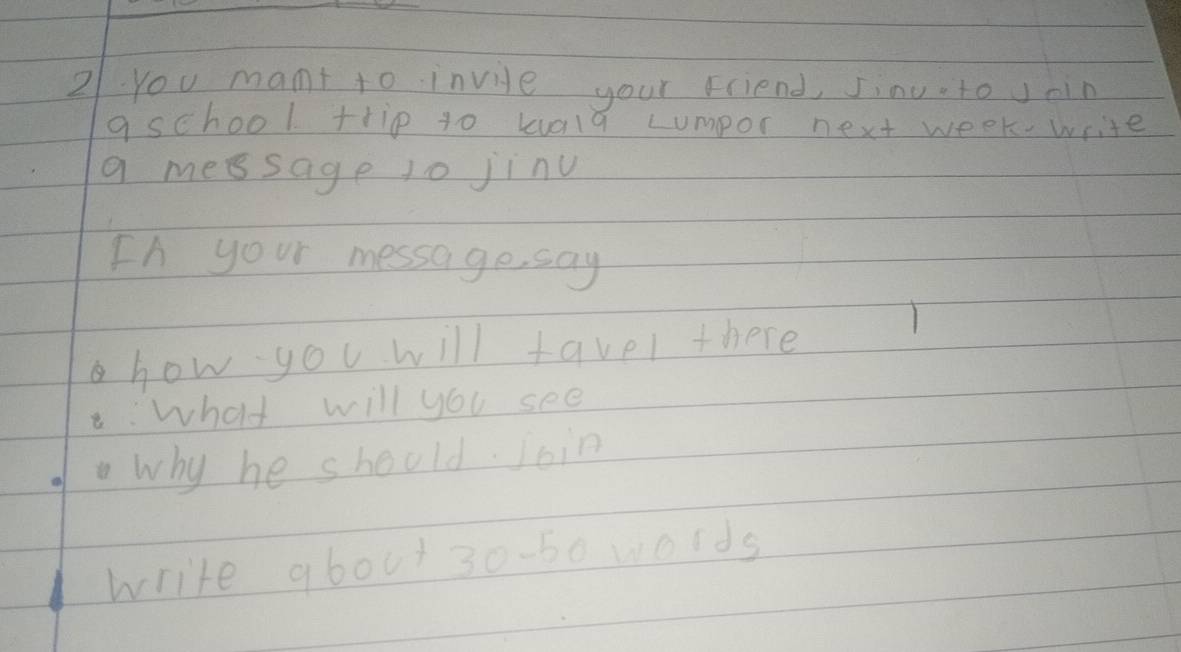 2 You mant to invite your Friend, Jinu to Join
a school trip to kuala Lumpor next week. Write
a message to jinu
In your message, say
how you will tavel there
What will you see
Why he should join
Write about 30-50 words